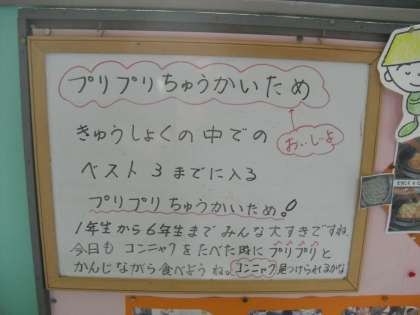 プリプリちゅうかいため
おいしーよ
きゅうしょくの中での
ベスト3までに入る
プリプリちゅうかいため!
1年生から6年生までみんな大すきですね
今日もコンニャクをたべた時にプリプリと
かんじながら食べようね。コンニャク見つけられるかな